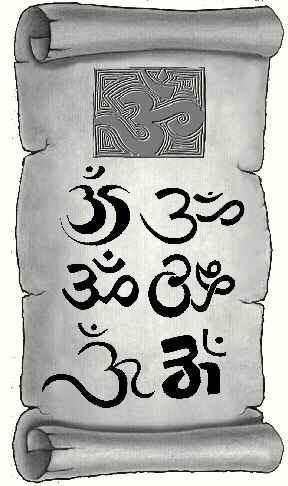 ॐ
ॐ ॐ
ॐ ॐ
ॐ ॐ